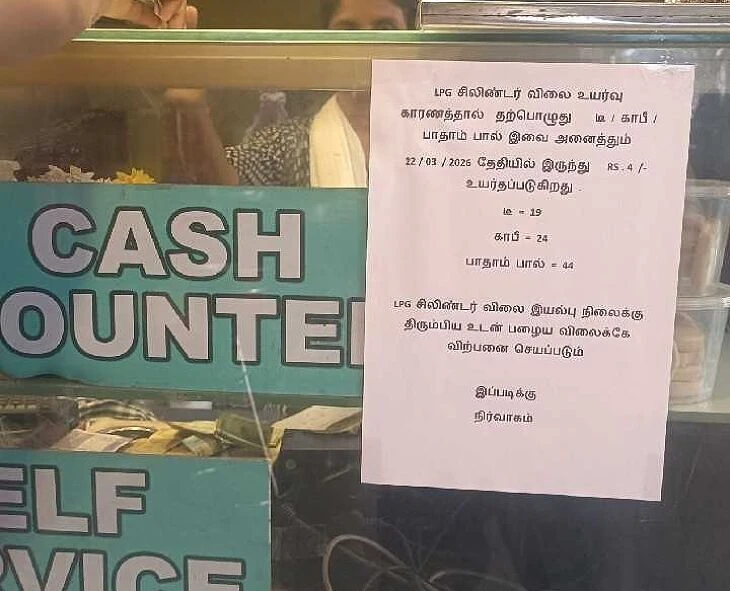 CASH
OUNTE
ELF
RVICE
LPG சிலிண்டர் விலை உயர்வு
காரணத்தால் தற்பொழுது டீ / காபீ /
பாதாம் பால் இவை அனைத்தும்
22 / 03 / 2026 தேதியில் இருந்து RS . 4 /-
உயர்தப்படுகிறது .
டீ = 19
காபீ = 24
பாதாம் பால் = 44
LPG சிலிண்டர் விலை இயல்பு நிலைக்கு
திரும்பிய உடன் பழைய விலைக்கே
விற்பனை செயப்படும்
இப்படிக்கு
நிர்வாகம்